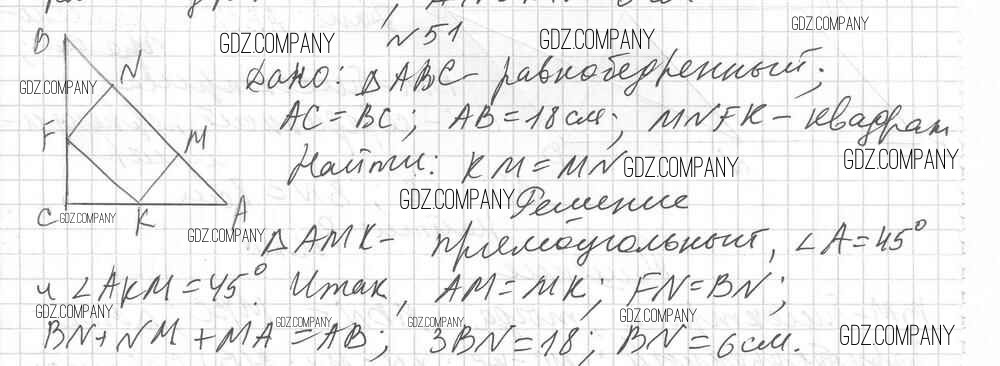 №51
B
N
F
M
C
K
A
Дано: △ABC - равнобедренный;
AC = BC; AB = 18 см; MNFK - квадрат
Найти: KM = MN
Решение
△AMK - прямоугольный, ∠A = 45°
и ∠AKM = 45°. Итак, AM = MK; FN = BN;
BN + NM + MA = AB; 3BN = 18; BN = 6 см.
GDZ.COMPANY
GDZ.COMPANY
GDZ.COMPANY
GDZ.COMPANY
GDZ.COMPANY
GDZ.COMPANY
GDZ.COMPANY
GDZ.COMPANY
GDZ.COMPANY
GDZ.COMPANY
GDZ.COMPANY
GDZ.COMPANY
GDZ.COMPANY
GDZ.COMPANY